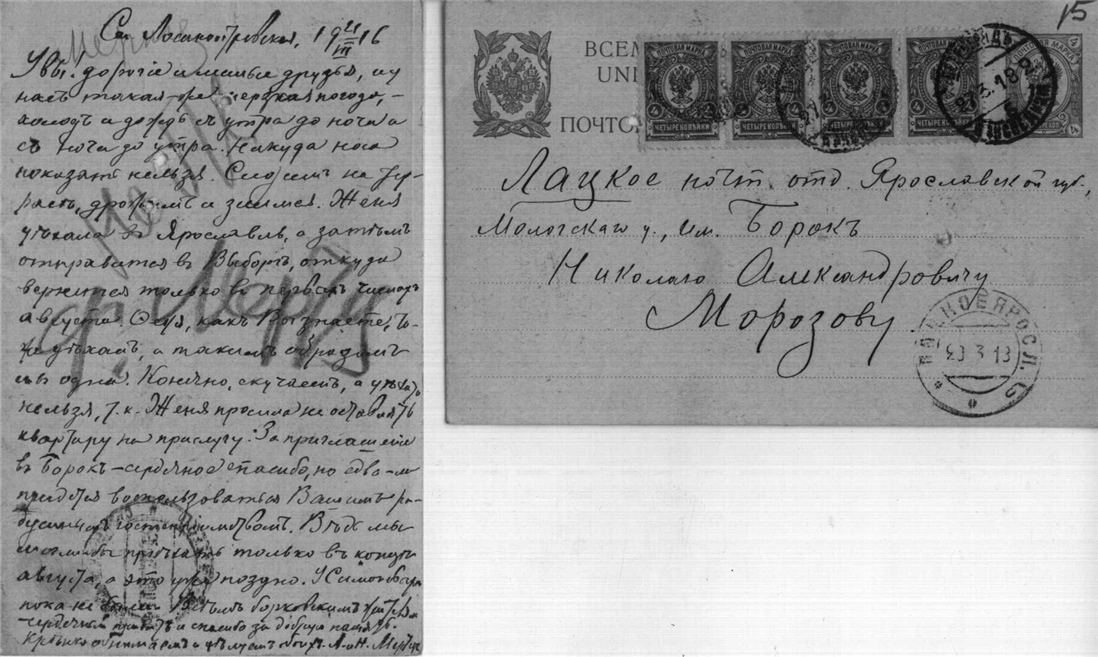 Ст. Лосиноостровская, 19 21/VII 16
Увы, дорогие и милые друзья, и у
насъ такая-же мерзкая погода, –
холодъ и дождь съ утра до ночи и
съ ночи до утра. Никуда носа
показать нельзя. Сидимъ на тер-
расѣ, дрожимъ и злимся. Женя
уѣхала въ Ярославль, а затѣмъ
отправится въ Выборгъ, откуда
вернется только въ первыхъ числахъ
августа. какъ Вы знаете, то-
же уѣхали, а такимъ образомъ
мы одни. Конечно, скучаемъ, а уѣхать
нельзя, т.к. Женя просила не оставлять
квартиру на прислугу. За приглашение
въ Борокъ – сердечное спасибо, но едва-ли
придется воспользоваться Вашимъ ра-
душнымъ гостеприимствомъ. Вѣдь мы
могли-бы приѣхать только въ концѣ
августа, а это уже поздно. У
пока не были. Всѣмъ борковскимъ
сердечный привѣтъ и спасибо за добрую память.
Крѣпко обнимаемъ и цѣлуемъ обоихъ. А. и Н.
15
ВСЕМ
UNI
ПОЧТО
ПОЧТОВАЯ МАРКА
4
ЧЕТЫРЕ КОПѢЙКИ
ПОЧТОВАЯ МАРКА
4
ЧЕТЫРЕ КОПѢЙКИ
ПОЧТОВАЯ МАРКА
4
ЧЕТЫРЕ КОПѢЙКИ
ПОЧТОВАЯ МАРКА
4
ЧЕТЫРЕ КОПѢЙКИ
Лацкое почт. отд. Ярославской губ.,
Мологскаго у., им. Борокъ
Николаю Александровичу
Морозову.
ЯРОСЛ. Г.